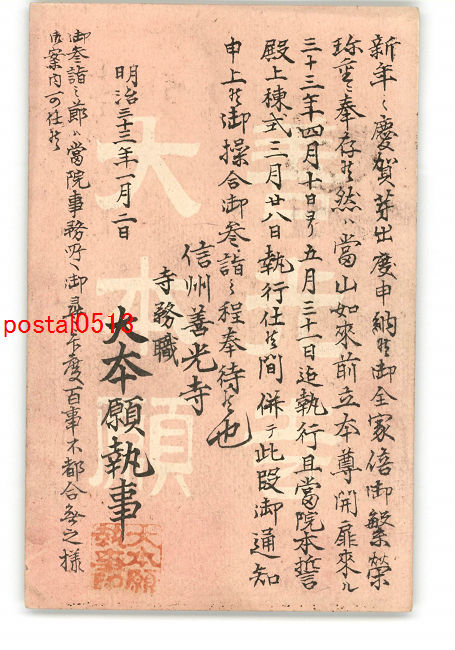 新年之慶賀芽出度申納候御全家倍御繁榮
珎重奉存候然ハ當山如來前立本尊開扉來ル
三十三年四月十日ヨリ五月三十一日迄執行且當院本誓
殿上棟式三月廿八日執行仕候間併テ此段御通知
申上候御操合御叅詣之程奉待候也
信州善光寺
寺務職
大本願執事
明治三十三年一月二日
御叅詣之節ハ當院事務所ヘ御尋 度百事不都合無之様
御案内可仕候
善光寺
大本願
大本願
執事印
postal0513